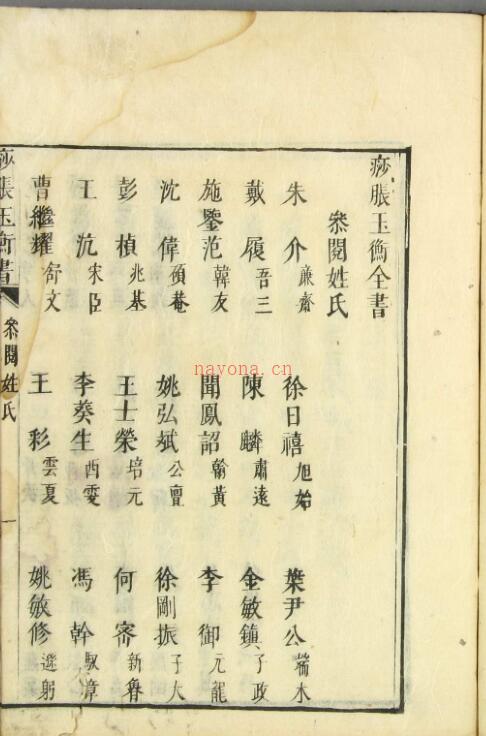 痧脹玉衡全書
叅閱姓氏
朱介廉齋 徐日禧旭始 葉尹公瑞木
戴履吾三 陳麟肅遠 金敏鎮子政
施鑒范韓友 聞鳳詔翰黃 李御元龍
沈偉碩菴 姚弘斌公亶 徐剛振子大
彭楨兆基 王士榮培元 何審新魯
王沆宋臣 李葵生西雯 馮幹馭漳
曹繼耀舒文 王彩雲夏 姚敏修遜躬
痧脹玉衡書 叅閱姓氏 一
navona.cn